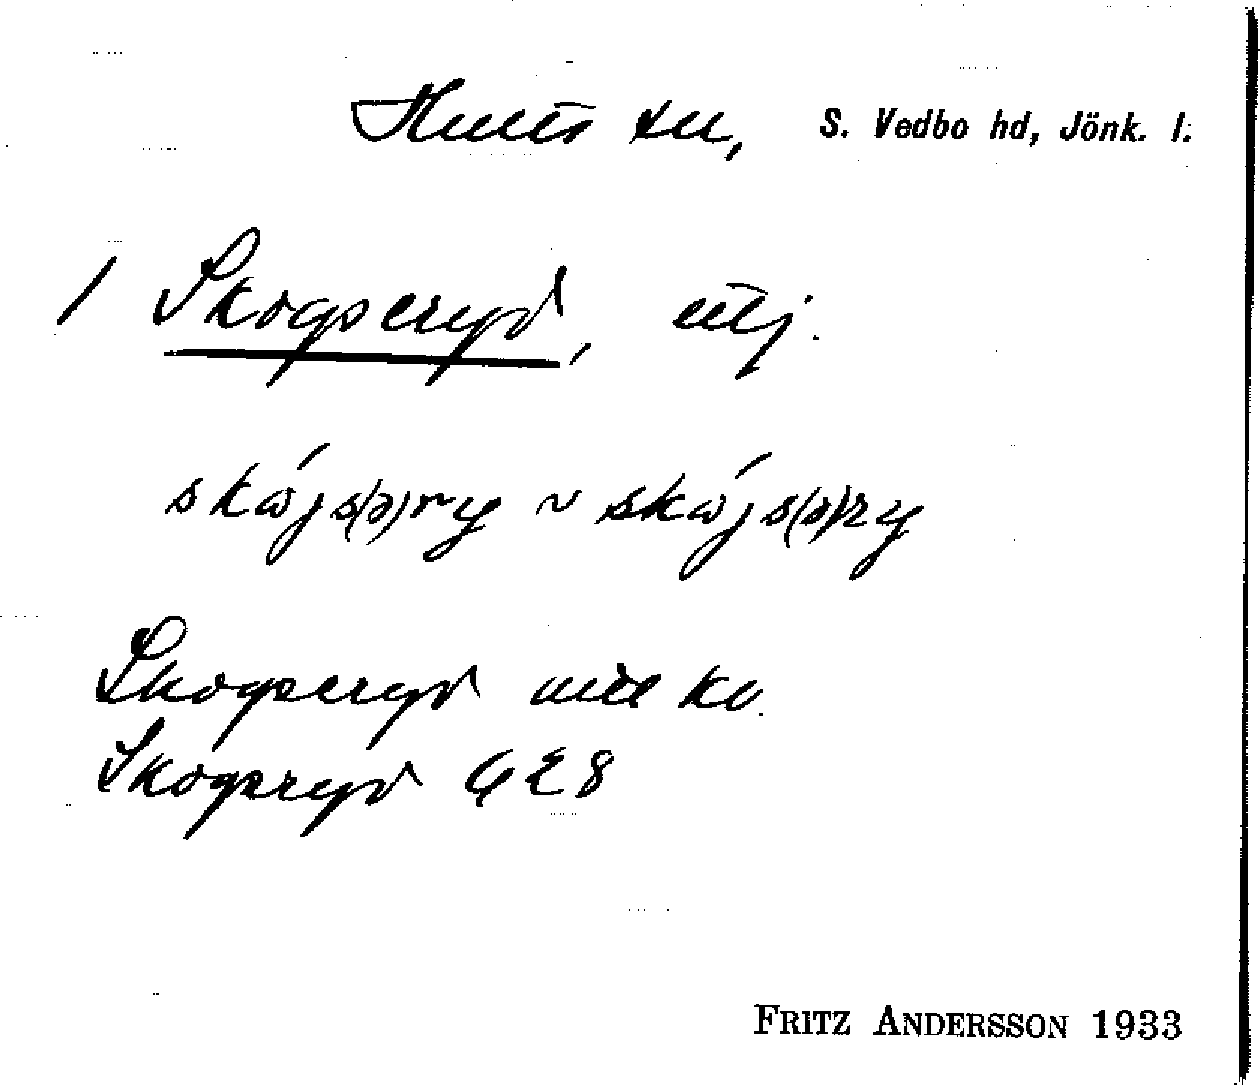 Hults sn, S. Vedbo hd, Jönk. l.
1 Skogseryd, utj.
skójs(ə)ry ~ skójs(ə)ry
Skogseryd utt kv.
Skogsryd GEB
FRITZ ANDERSSON 1933